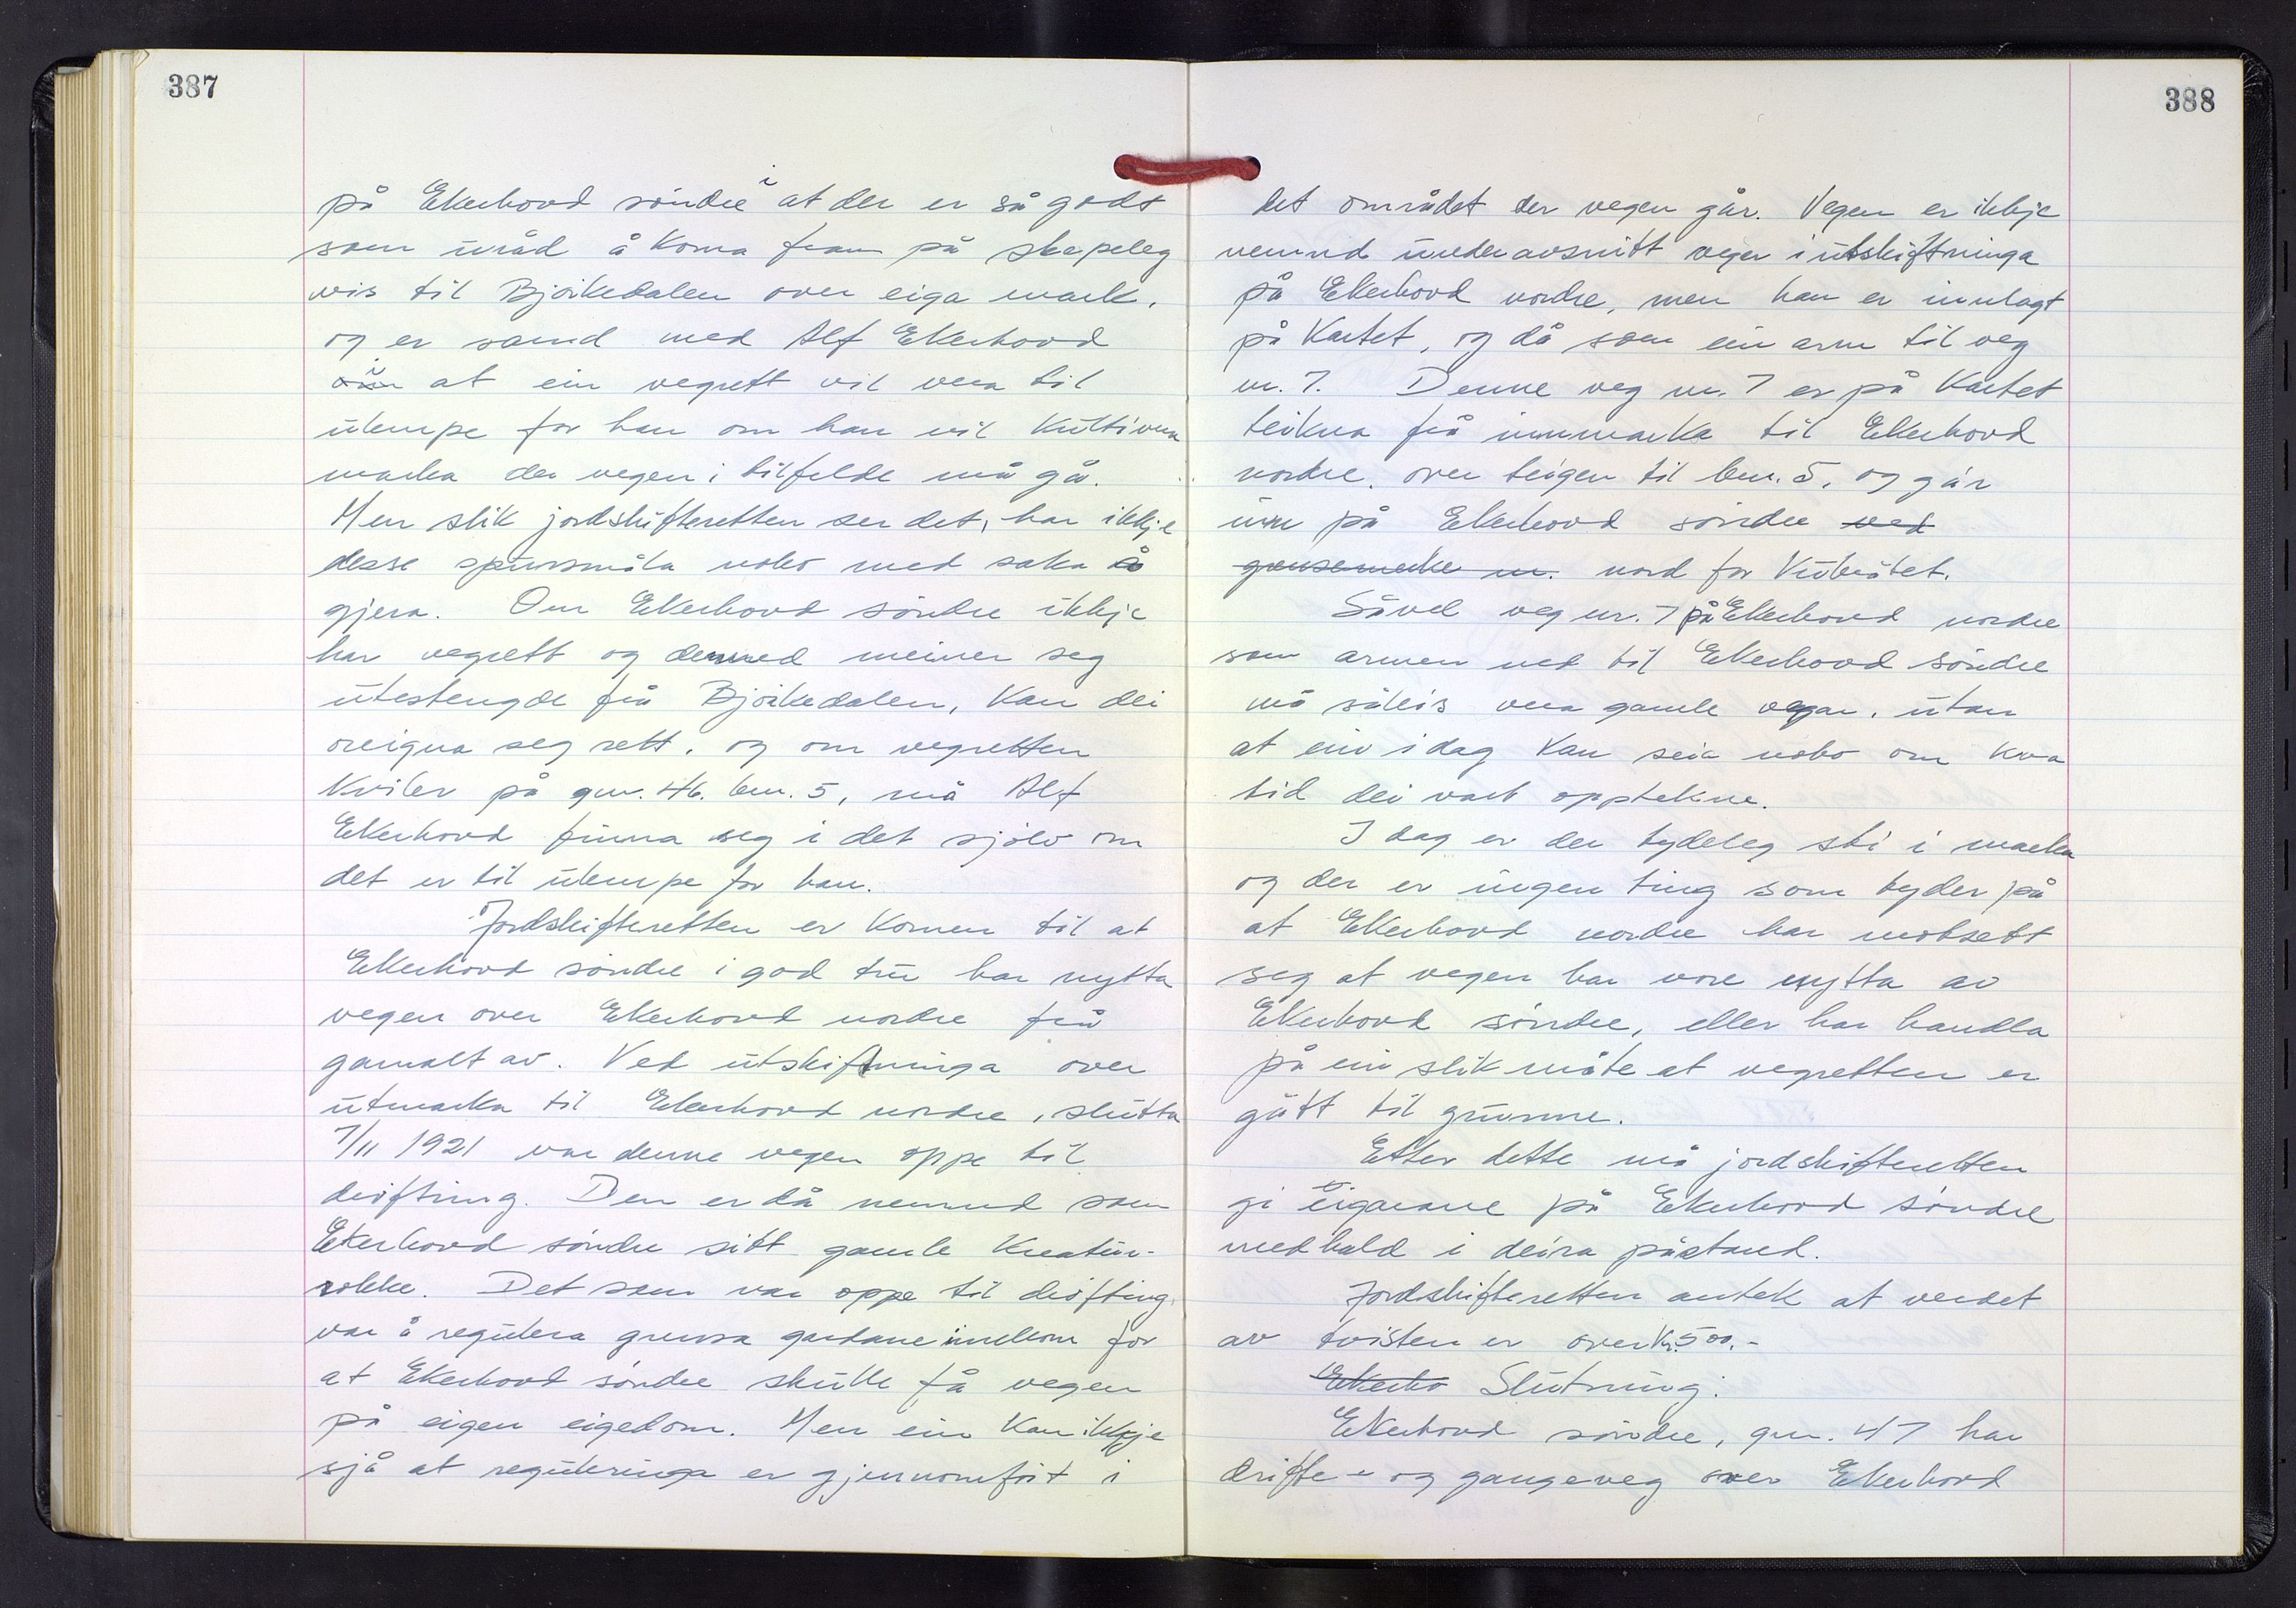 387
på Ekerhovd søndre i at der er så godt
som uråd å koma fram på skapeleg
vis til Bjørkedalen over eiga mark,
og er samd med Alf Ekerhovd
i at ein vegrett vil vera til
ulempe for han om han vil kultivera
marka der vegen i tilfelde må gå.
Men slik jordskifteretten ser det, har ikkje
desse spursmåla noko med saka å
gjera. Om Ekerhovd søndre ikkje
har vegrett og dermed meiner seg
utestengde frå Bjørkedalen, kan dei
oreigna seg rett, og om vegretten
kviler på gnr. 46. bnr. 5, må Alf
Ekerhovd finna seg i det sjølv om
det er til ulempe for han.
Jordskifteretten er komen til at
Ekerhovd søndre i god tru har nytta
vegen over Ekerhovd nordre frå
gamalt av. Ved utskiftninga over
utmarka til Ekerhovd nordre, slutta
7/11 1921 var denne vegen oppe til
drøftning. Den er då nemnd som
Ekerhovd søndre sitt gamle kreatur-
rekke. Det som var oppe til drøfting
var å regulera grensa gardane imellom for
at Ekerhovd søndre skulle få vegen
på eigen eigedom. Men ein kan ikkje
sjå at reguleringa er gjennomført i
388
det området der vegen går. Vegen er ikkje
nemnd under avsnitt veger i utskiftninga
på Ekerhovd nordre, men han er innlagt
på kartet, og då som ein arm til veg
nr. 7. Denne veg nr. 7 er på kartet
teikna frå innmarka til Ekerhovd
nordre, over teigen til bnr. 5, og går
inn på Ekerhovd søndre ved
grensemerke nr. nord for Kubåtet.
Såvel veg nr. 7 på Ekerhovd nordre
som armen ned til Ekerhovd søndre
må såleis vera gamle vegar, utan
at ein i dag kan seia noko om kva
tid dei vart opptekne.
I dag er der tydeleg sti i marka
og der er ingen ting som tyder på
at Ekerhovd nordre har motsett
seg at vegen har vore nytta av
Ekerhovd søndre, eller har handla
på ein slik måte at vegretten er
gått til grunne.
Etter dette må jordskifteretten
gi eigarane på Ekerhovd søndre
medhald i deira påstand.
Jordskifteretten antek at verdet
av tvisten er over kr. 500.-
Ekerho Slutning:
Ekerhovd søndre, gnr. 47 har
drifte- og gangeveg over Ekerhovd